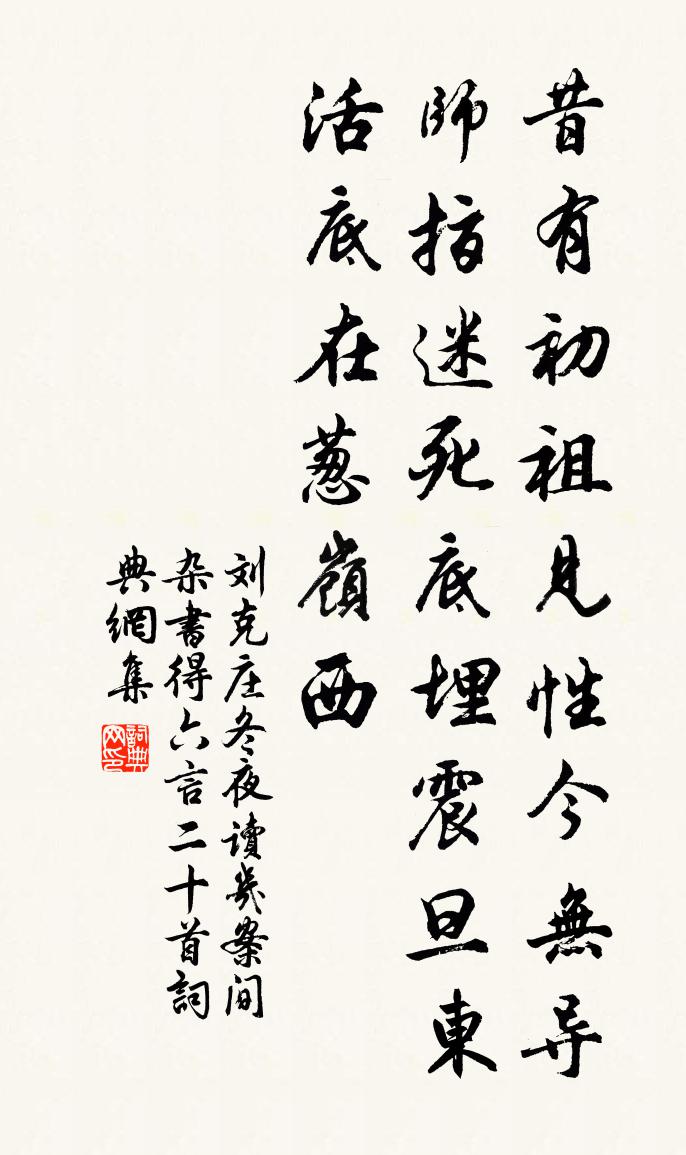 昔有初祖見性今無导
師指迷死底埋震旦東
活底在葱嶺西
刘克庄冬夜讀幾案间
杂書得六言二十首詞
典網集
詞典
网印